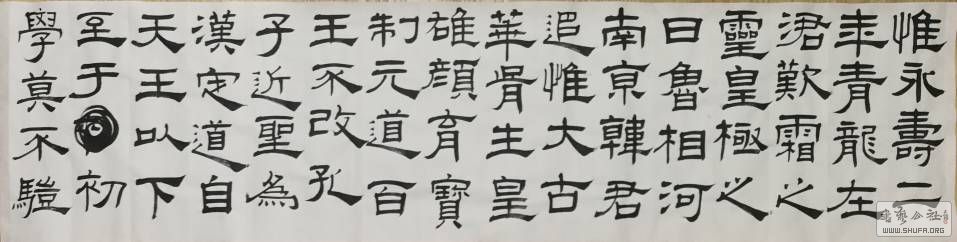 惟永壽二
年青龍在
涒歎霜之
靈皇極之
日魯相河
南京韓君
追惟大古
華胥生皇
雄顏育寶
制元道百
王不改孔
子近聖為
漢定道自
天王以下
至于初
學莫不驥
書藝公社
WWW.SHUFA.ORG